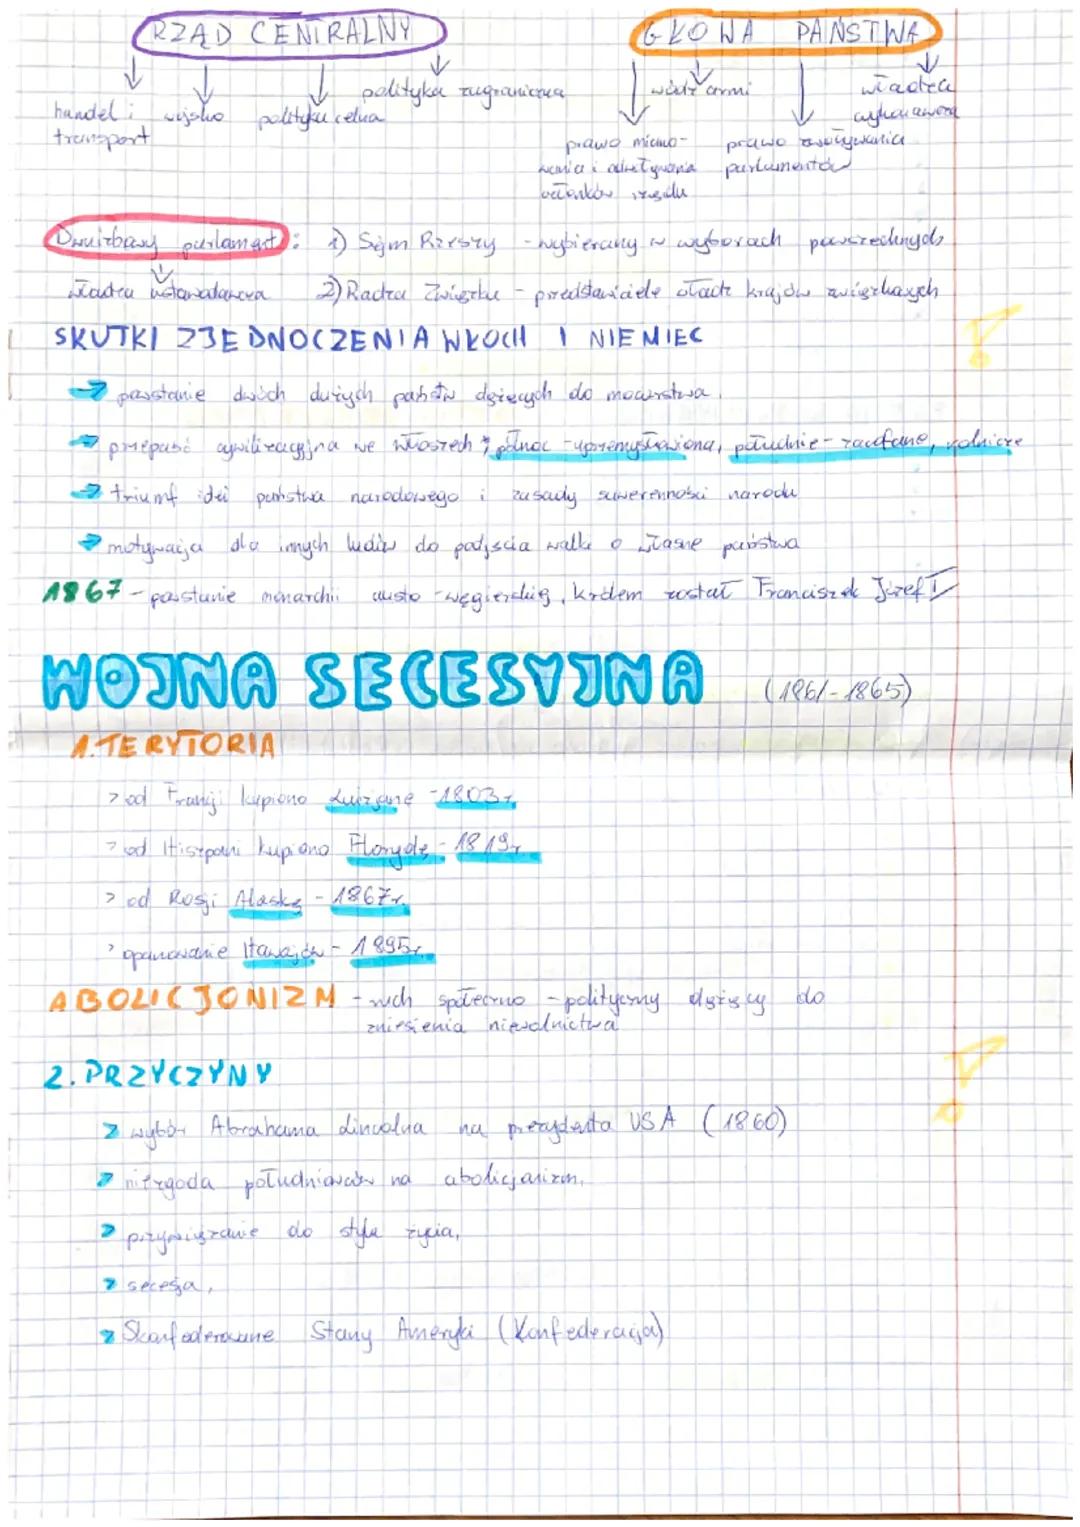 RZĄD CENTRALNY
GŁOWA PAŃSTWA
handel i transport
wojsko
polityka celna
polityka zagraniczna
prawo miano-
wania i odwoływania
członków rządu
wódz armi
prawo zwoływania
parlamentów
władza
wykonawcza
Dwuizbowy parlament: 1) Sejm Rzeszy - wybierany w wyborach powszechnych
władza ustawodawcza 2) Radza Związku - przedstawiciele władz krajów związkowych
SKUTKI ZJEDNOCZENIA WŁOCH I NIEMIEC
→ powstanie dwóch dużych państw dążących do mocarstwa.
→ przepaść cywilizacyjna we włoszech; północ - uprzemysłowiona, południe - zacofane, rolnicze
→ triumf idei państwa narodowego i zasady suwerenności narodu
→ motywacja dla innych ludów do podjścia walki o własne państwa
1867 - powstanie monarchii austo-węgierskiej, królem został Franciszek Józef I
WOJNA SECESYJNA (1861-1865)
1. TERYTORIA
> od Francji kupiono Luizjanę - 1803r.
> od Hiszpani kupiono Florydę - 1819r.
> od Rosji Alaskę - 1867r.
> opanowanie Hawajów - 1895r.
ABOLICJONIZM - ruch społeczno - polityczny dążący do
zniesienia niewolnictwa
2. PRZYCZYNY
> wybór Abrahama Lincolna na prezydenta USA (1860)
> niezgoda południowców na abolicjonizm,
> przywiązanie do stylu życia,
> secesja,
> Skonfederowane Stany Ameryki (Konfederacja)